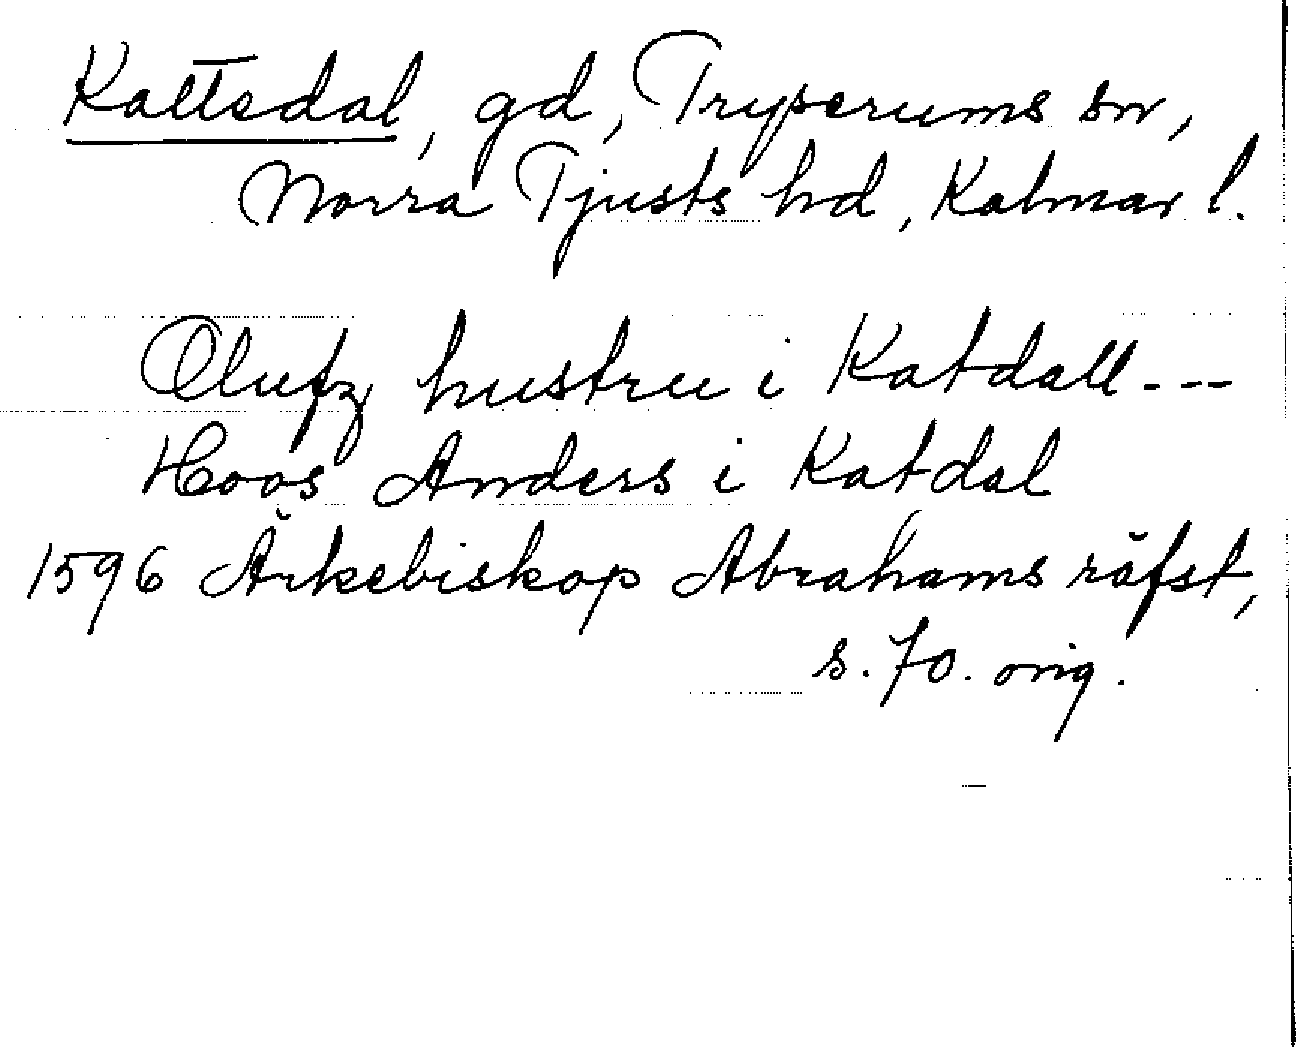 Kattedal, gd, Tryserums sn,
Norra Tjusts hd, Kalmar l.
Olufz hustru i Katdall---
Hoos Anders i Katdal
1596 Ärkebiskop Abrahams räfst,
s. 70. orig.